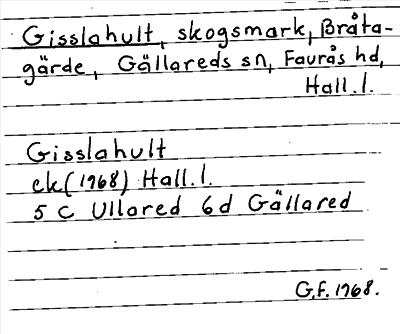 Gisslahult, skogsmark, Bråta-
gärde, Gällareds sn, Faurås hd,
Hall. l.
Gisslahult
ek (1968) Hall. l.
5 C Ullared 6 d Gällared
G.F. 1968.